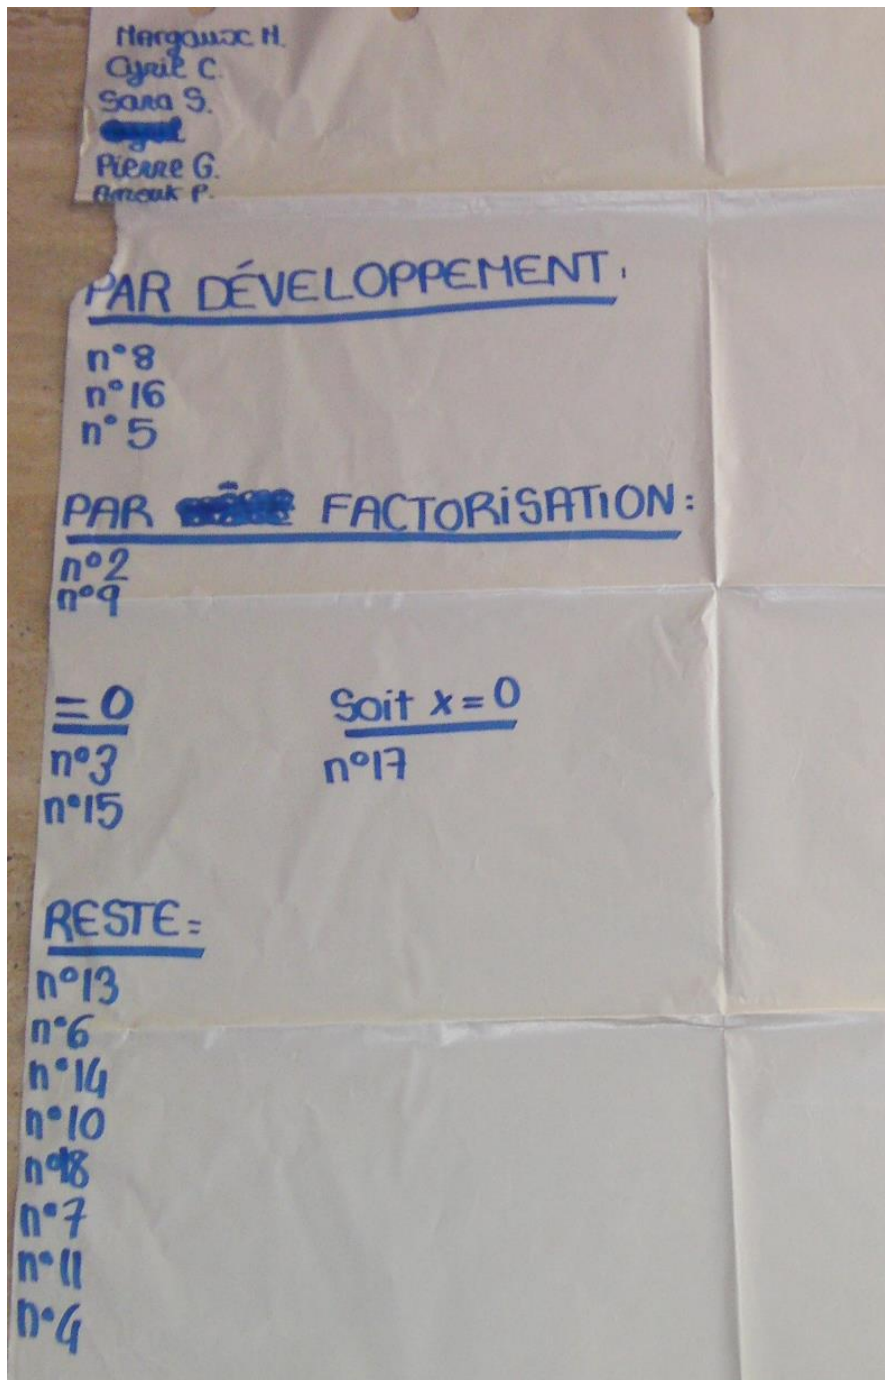 Margaux H.
Cyril C.
Sara S.
Pierre G.
Anouk P.
PAR DÉVELOPPEMENT:
n°8
n°16
n°5
PAR FACTORiSATION:
n°2
n°9
= 0 Soit x = 0
n°3 n°17
n°15
RESTE:
n°13
n°6
n°14
n°10
n°18
n°7
n°11
n°4